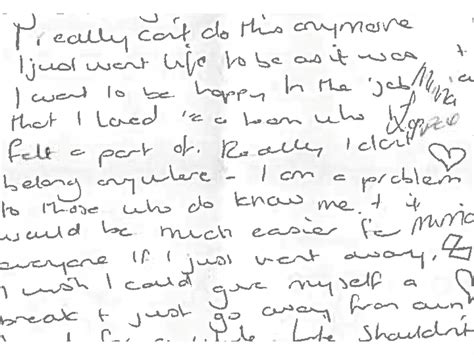 I really can't do this anymore
I just want life to be as it was +
I want to be happy In the 'job
that I loved 's a team who I
felt a part of. Really I don't
belong anywhere - I am a problem
to those who do know me. + it
would be much easier for
everyone If I just went away.
I wish I could give myself a
break + just go away from
Life Shouldn't